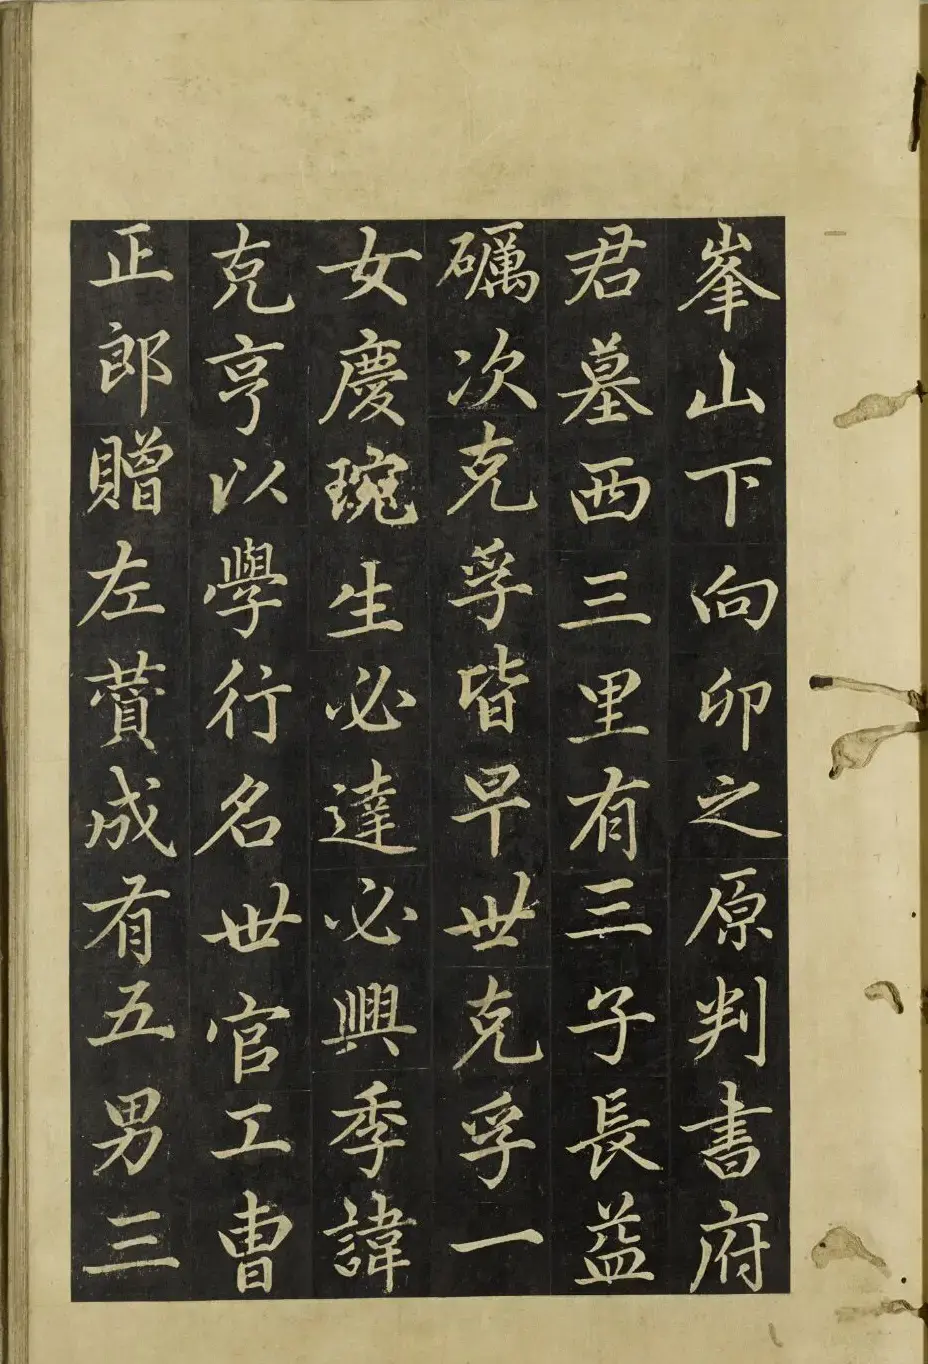 峯山下向卯之原判書府
君墓西三里有三子長益
礪次克孚皆早世克孚一
女慶琬生必達必興季諱
克亨以學行名世官工曹
正郎贈左賛成有五男三